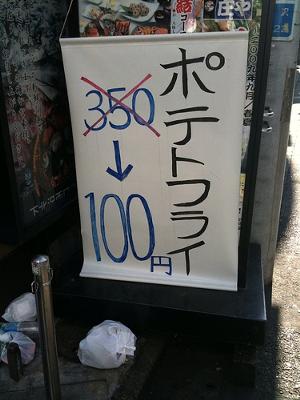 ポテトフライ
350
↓
100円
庄や